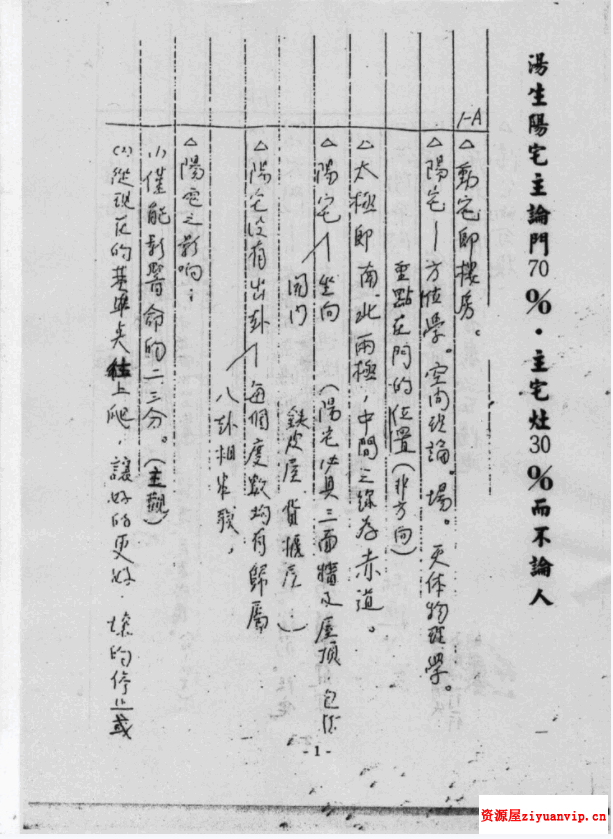 湯生陽宅主論門70%・主宅灶30%而不論人
1-A
△動宅即樓房。
△陽宅—方位學。空間理論。場。天体物理學。
重點在門的位置(非方向)
△太極即南北兩極,中間之線為赤道。
△陽宅 坐向(陽宅必具三面牆及屋頂包括
開門 鉄皮屋 貨櫃屋)
△陽宅沒有出卦 每個度數均有歸屬
八卦相生我,
△陽宅之影响:
(1)僅能影響命的二三分。(主觀)
(2)從現在的基準点往上爬,讓好的更好.壞的停止或
- 1 -
资源屋ziyuanvip.cn